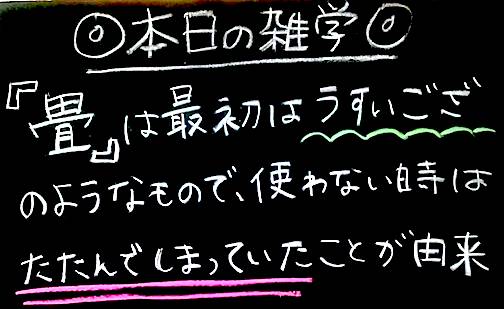 ◎本日の雑学◎
『畳』は最初はうすいござ
のようなもので、使わない時は
たたんでしまっていたことが由来